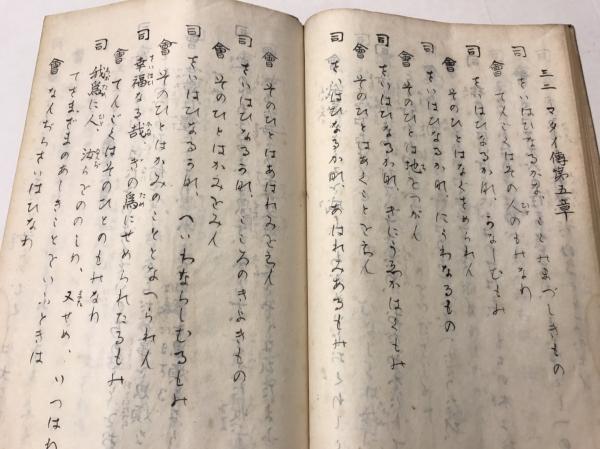 三二 マタイ傳第五章
司 さいはひなるかな、こころのまづしきもの
會 てんごくはその人のものなり
司 さいはひなるかな、かなしむもの
會 そのひとはなぐさめられん
司 さいはひなるかな、にうわなるもの
會 そのひとは地をつがん
司 さいはひなるかな、ぎにうゑかはくもの
會 そのひとはあくことをえん
司 さいはひなるかな、あはれみあるもの
會 そのひとはあはれみをえん
司 さいはひなるかな、こころのきよきもの
會 そのひとはかみをみん
司 さいはひなるかな、へいわならしむるもの
會 そのひとはかみのこととなへられん
司 幸福なる哉、ぎの為にせめられたるもの
會 てんごくはそのひとのものなり
司 我為に人、汝らをののしり、又せめ、いつはり
てさまざまのあしきことをいふときは
會 なんぢらさいはひなり